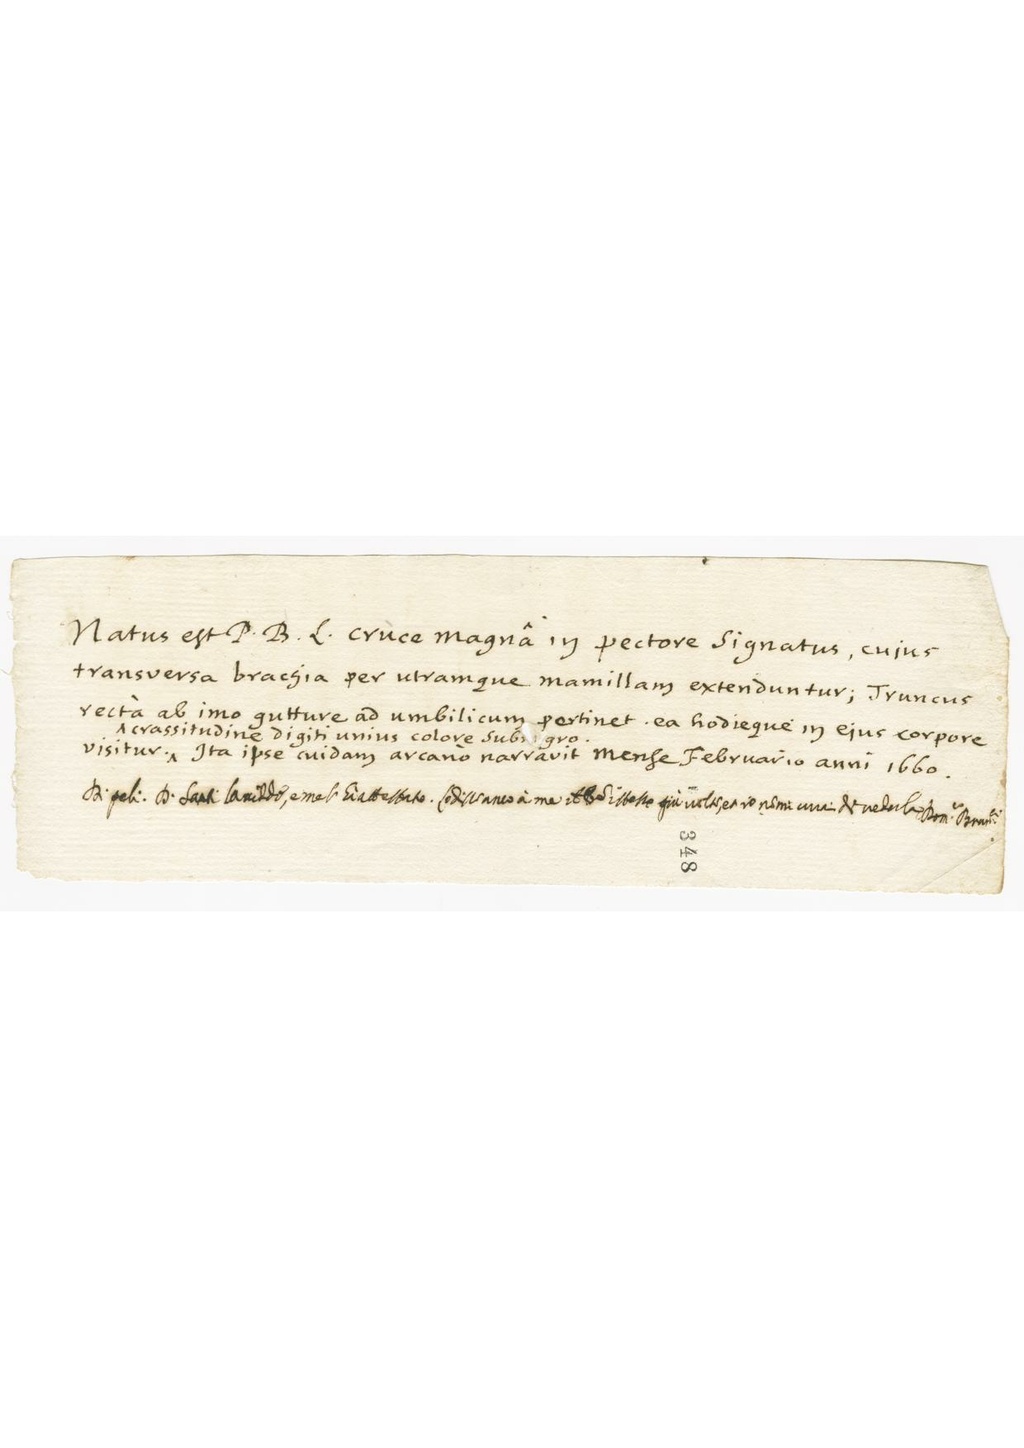 Natus est P. B. L. cruce magnâ in pectore signatus, cujus
transversa brachia per utramque mamillam extenduntur; Truncus
rectà ab imo gutture ad umbilicum pertinet. ea hodieque in ejus corpore
^ crassitudine digiti unius colore subnigro.
visitur. ^ Ita ipse cuidam arcano narravit mense Februario anni 1660.
e me l'hà attestato.
348